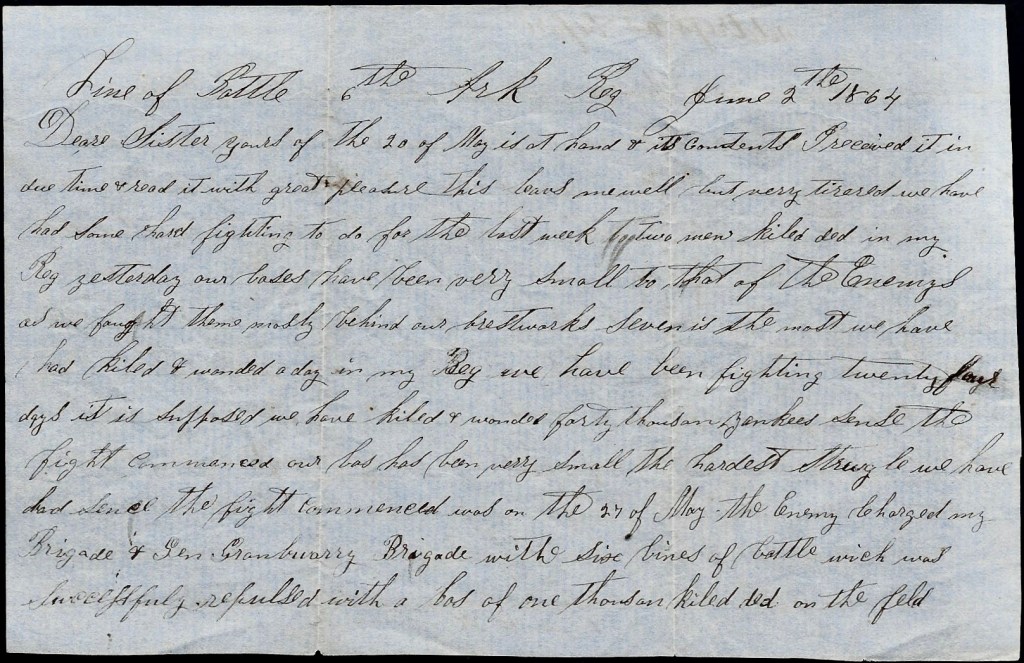 Line of Battle 6th Ark Reg June 2th 1864
Deare Sister yours of the 20 of May is at hand & its Contents I received it in
due time & read it with great pleasure this leavs me well but verry tirered we have
had some hard fighting to do for the last week two men kiled ded in my
Reg yesterday our loses have been very small to that of the Enemys
as we faught theme mosly behind our brestworks seven is the most we have
had kiled & wonded a day in my Reg we have been fighting twenty
days it is supposed we have kiled & wonded forty thousan yankees sense the
fight commenced our los has been very small the hardest strugle we have
had sence the fight commenced was on the 27 of May the Enemy Charged my
Brigade & Gen Granbuarry Brigade withe six lines of battle wich was
Successfuly repulsed with a los of one thousan kiled ded on the feld